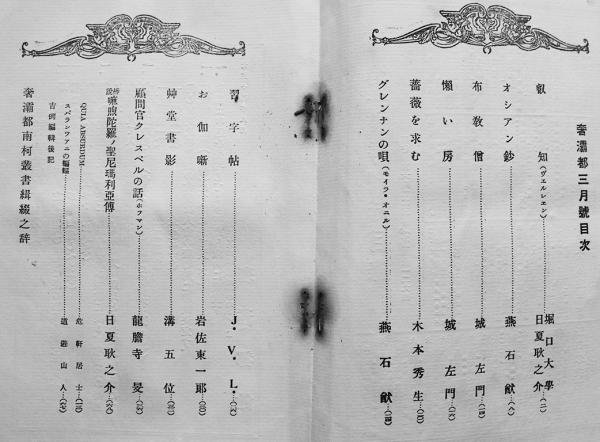 奢灞都三月號目次
叡知(ヴェルレェン)……堀口大學 日夏耿之介…(一)
オシアン鈔……燕石猷…(八)
布敎僧……城左門…(一四)
懶い房……城左門…(一六)
薔薇を求む……木本秀生…(二〇)
グレンナンの唄(モイラ・オニル)……燕石猷…
習字帖……J・V・L・…
お伽噺……岩佐東一郎…(三〇)
艸堂書影……溝五位…
顧問官クレスペルの話(ホフマン)……龍膽寺旻…
嘛煦陀羅ノ聖尼瑪利亞傳……日夏耿之介…
QUIA ABSURDUM……危軒居士…
スパランツァニの蝙蝠……道遊山人…
吉例編輯後記
奢灞都南柯叢書緝綴之辞